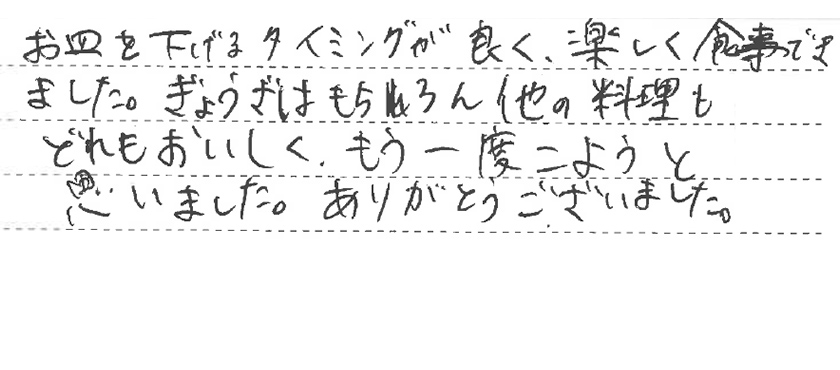 お皿を下げるタイミングが良く、楽しく食事でき
ました。ぎょうざはもちろん他の料理も
どれもおいしく、もう一度こようと
思いました。ありがとうございました。